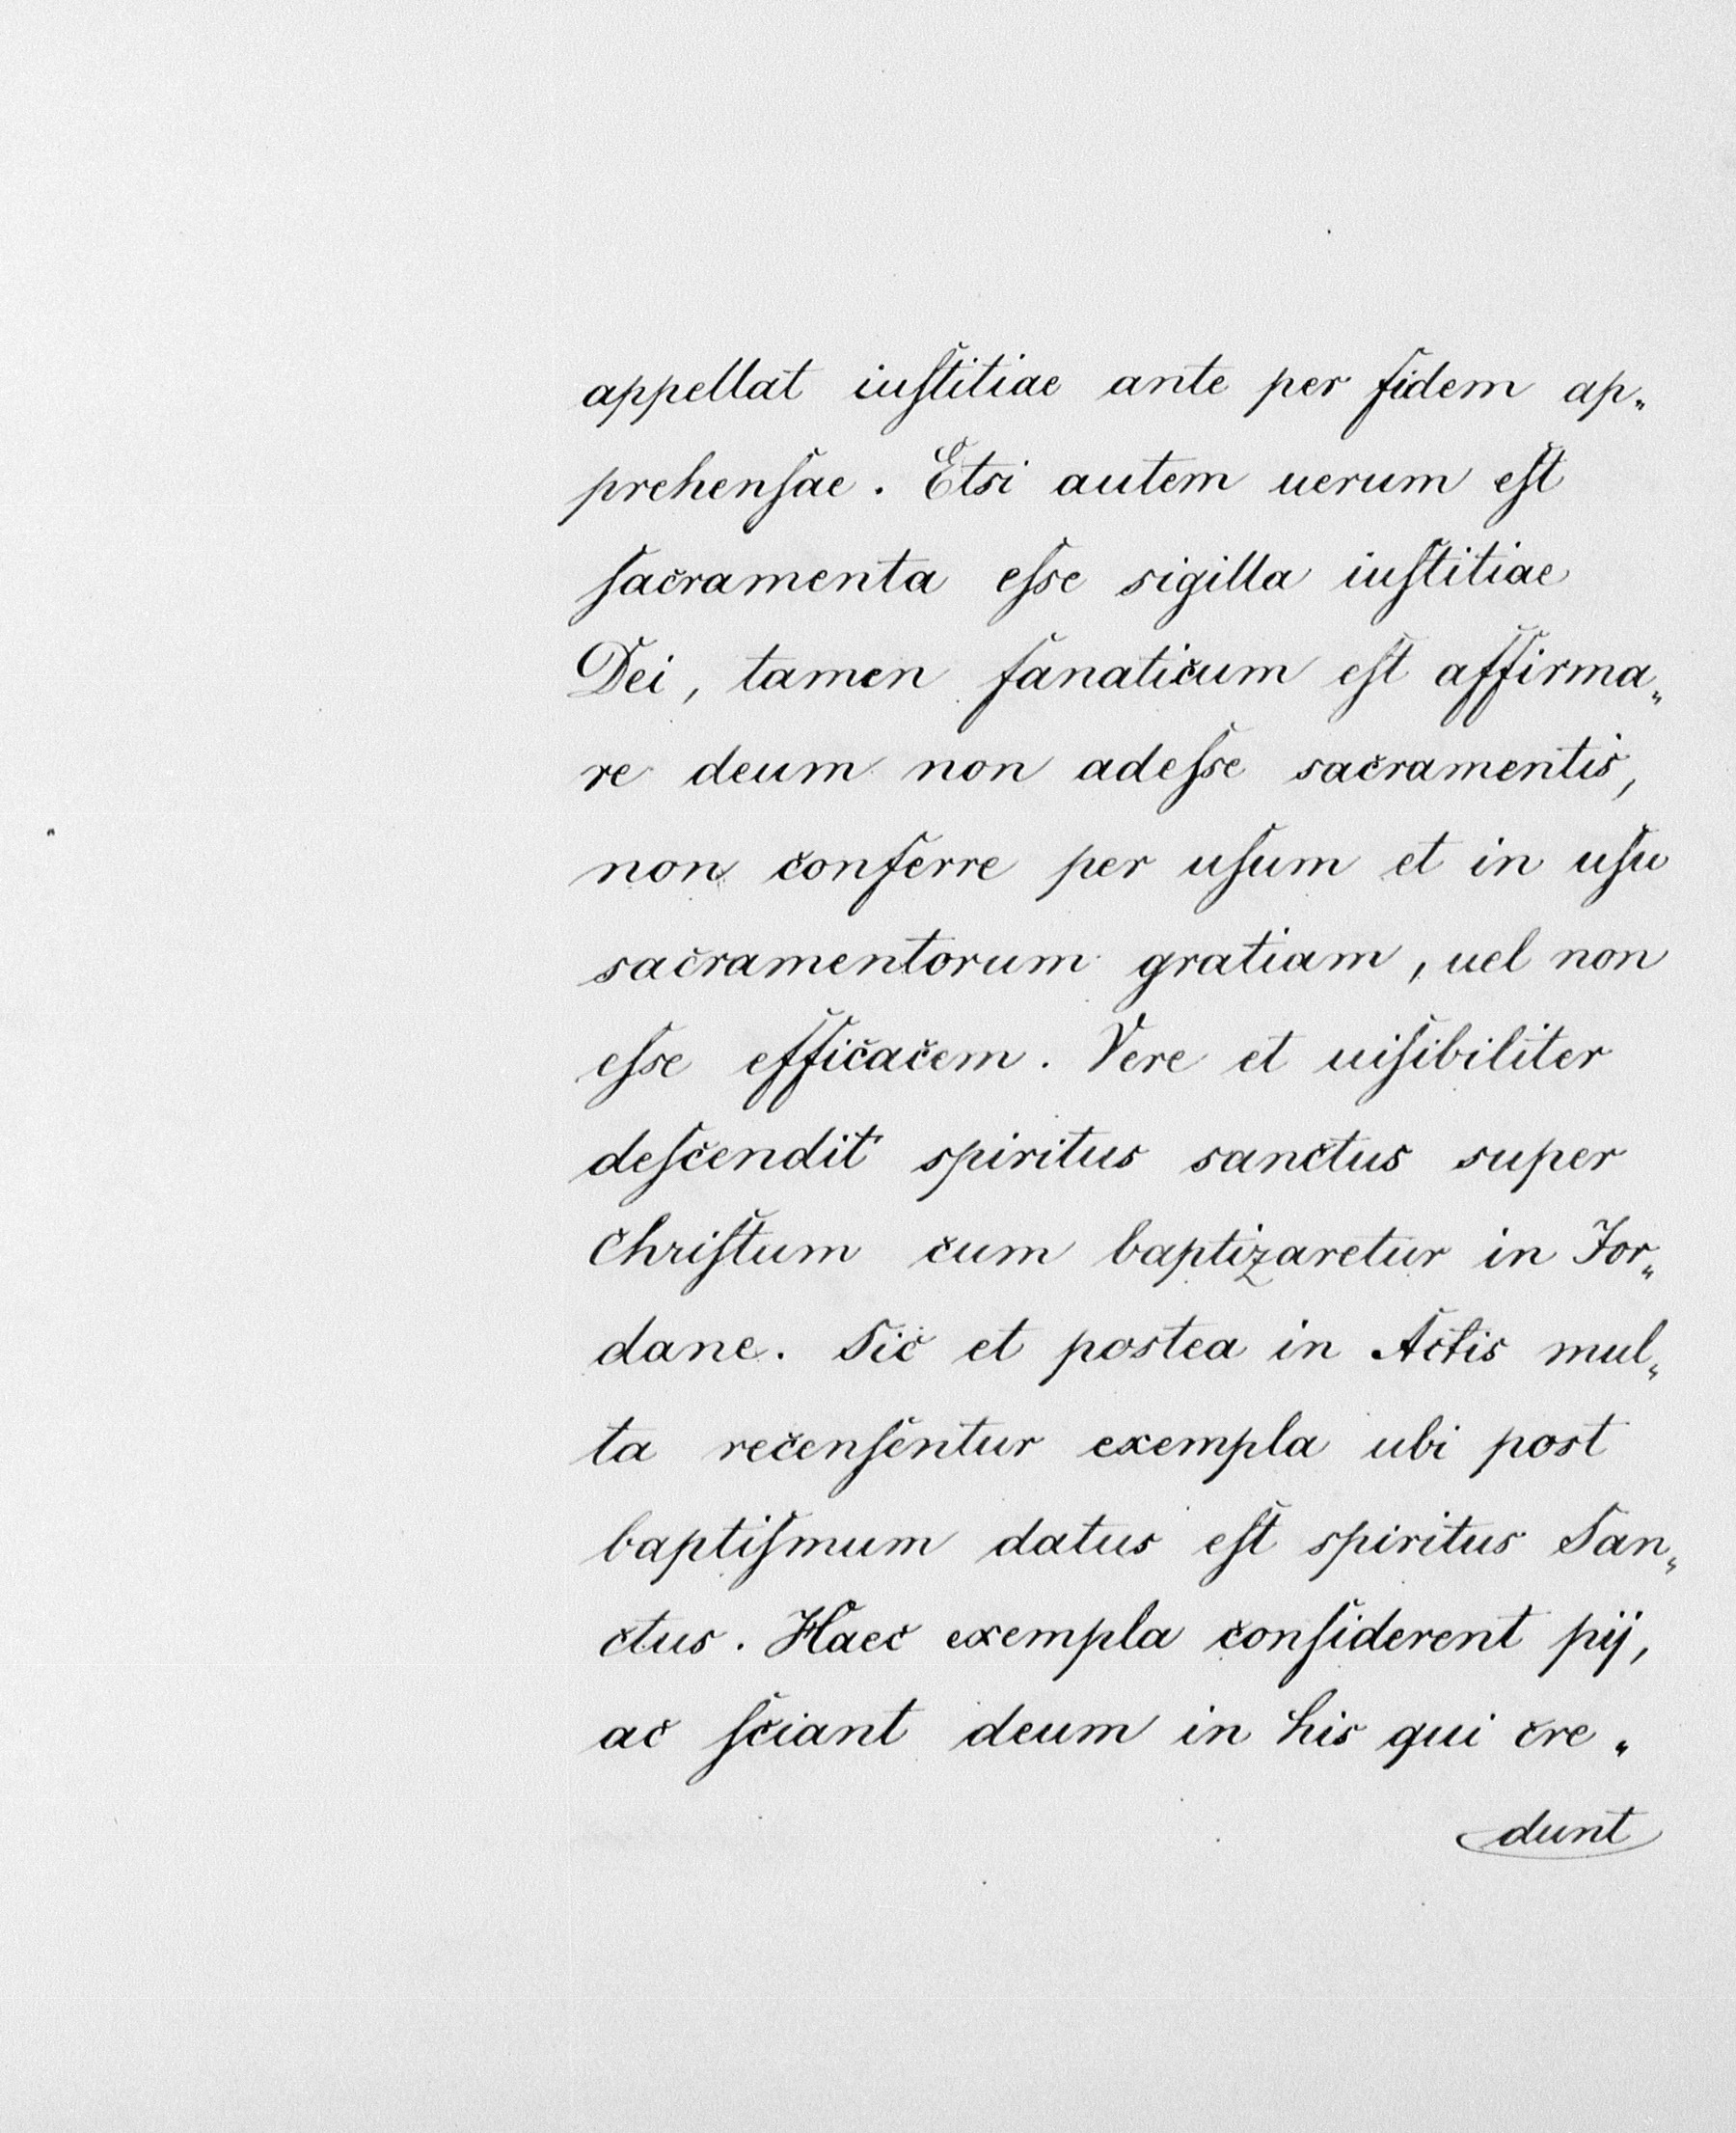 appellat iuſtitiae ante per fidem ap„
prehenſae. Etsi autem uerum eſt
ſacramenta eſse sigilla iuſtitiae
Dei, tamen fanaticum eſt affirma„
re deum non adeſse sacramentis,
non conferre per uſum et in uſu
sacramentorum gratiam, uel non
eſse efficacem. Vere et uiſibiliter
deſcendit spiritus sanctus super
Chriſtum cum baptizaretur in Jor„
dane. Sic et postea in Actis mul„
ta recenſentur exempla ubi post
baptiſmum datus eſt spiritus San„
ctus. Haec exempla conſiderent pij,
ac ſciant deum in his qui cre„
dunt